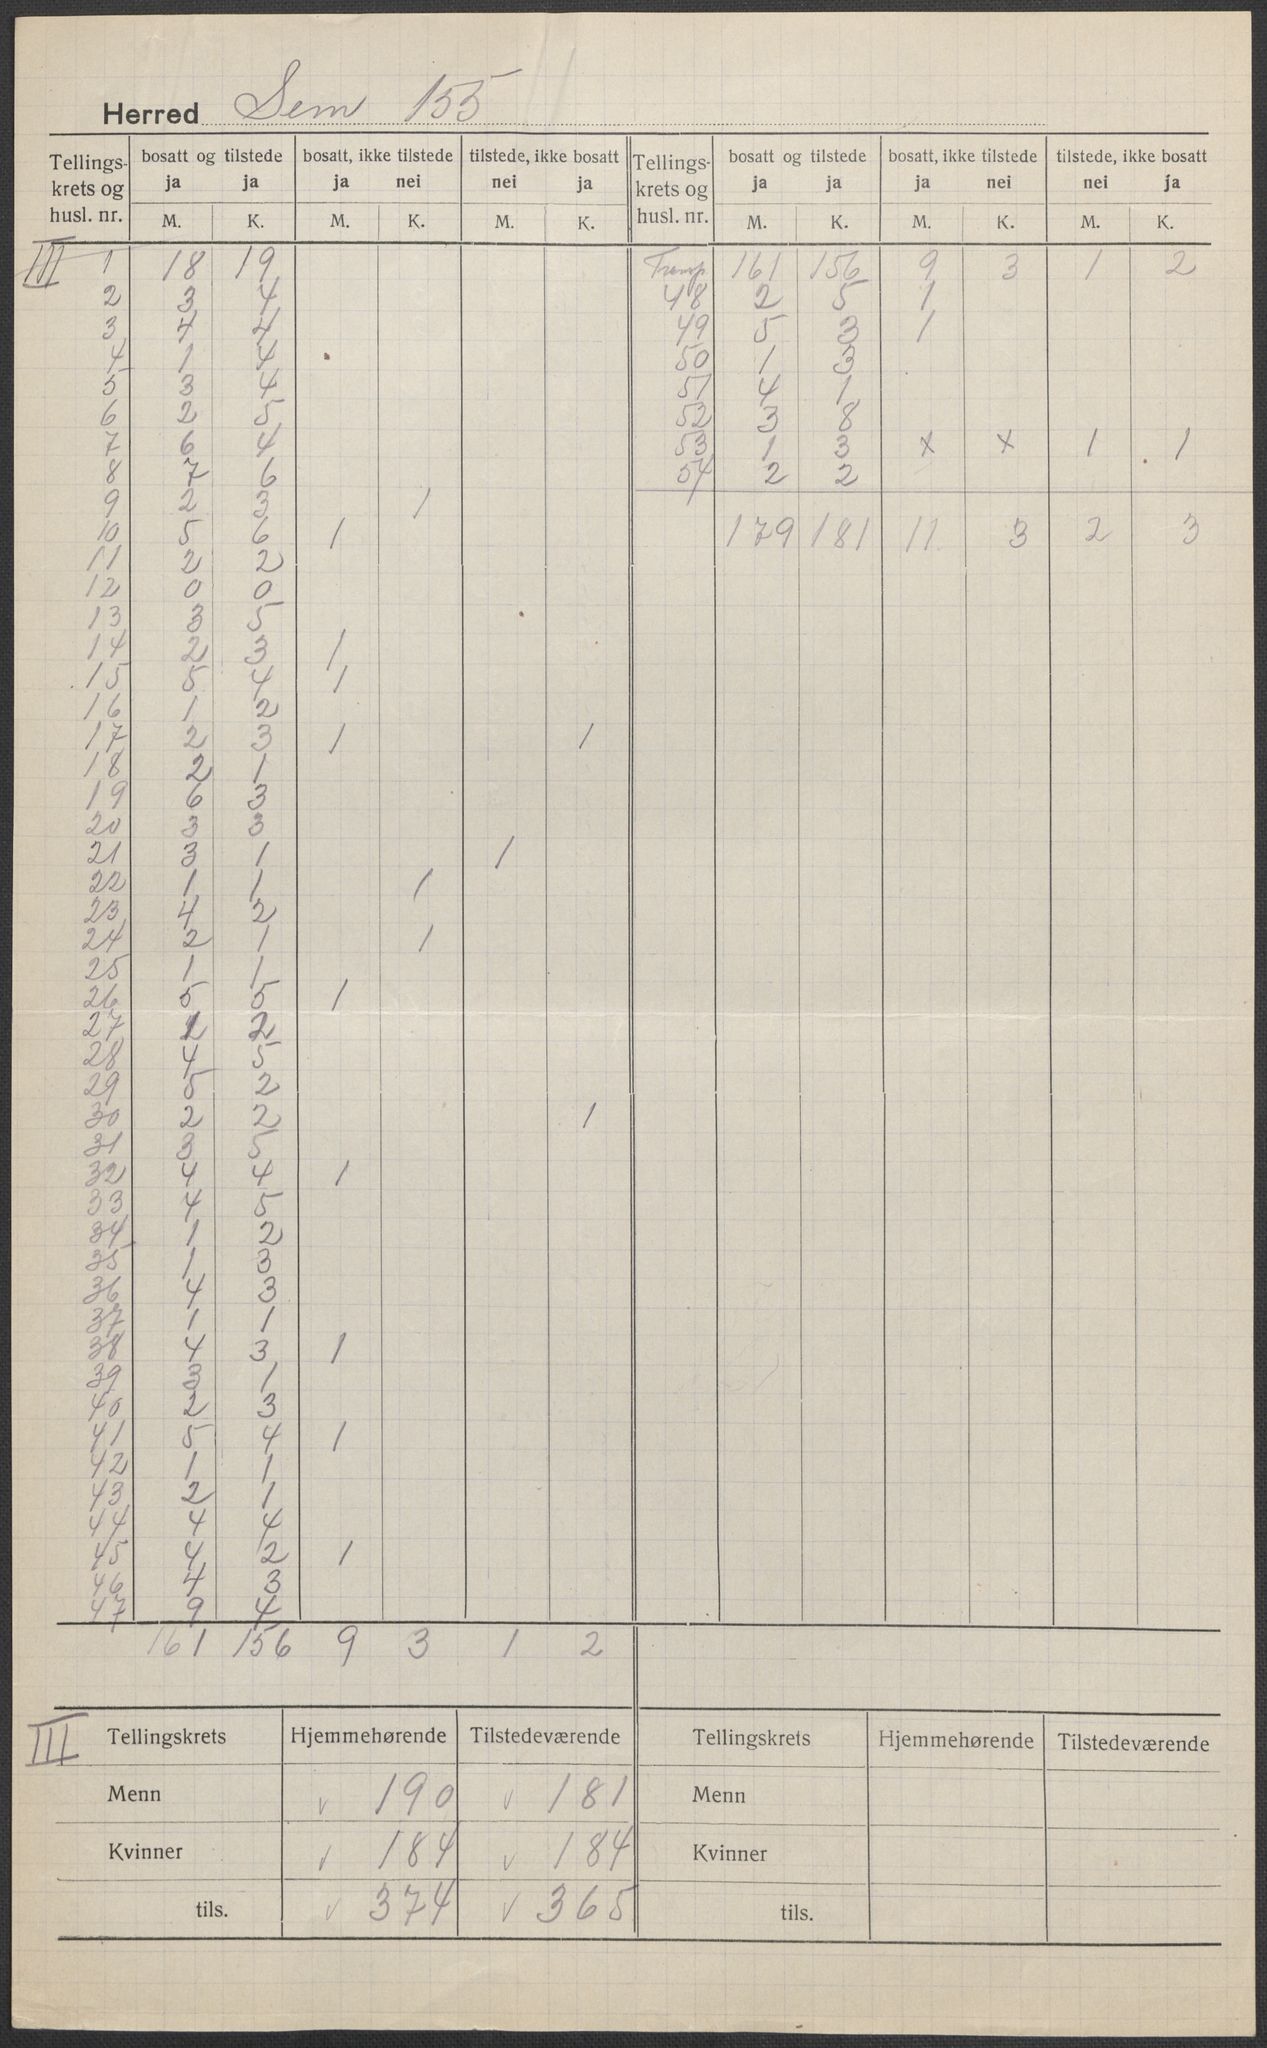 Herred Sem 155
Tellings-krets og husl. nr. | bosatt og tilstede ja ja M. K. | bosatt, ikke tilstede ja nei M. K. | tilstede, ikke bosatt nei ja M. K. | Tellings-krets og husl. nr. | bosatt og tilstede ja ja M. K. | bosatt, ikke tilstede ja nei M. K. | tilstede, ikke bosatt nei ja M. K.
III 1 18 19
2 3 4
3 4 4
4 1 4
5 3 4
6 2 5
7 6 4
8 7 6
9 2 3 1
10 5 6 1
11 2 2
12 0 0
13 3 5
14 2 3 1
15 5 4 1
16 1 2
17 2 3 1 1
18 2 1
19 6 3
20 3 3
21 3 1 1
22 1 1 1
23 4 2
24 2 1 1
25 1 1
26 5 5 1
27 2 2
28 4 5
29 5 2
30 2 2 1
31 3 5
32 4 4 1
33 4 5
34 1 2
35 1 3
36 4 3
37 1 1
38 4 3 1
39 3 1
40 2 3
41 5 4 1
42 1 1
43 2 1
44 4 4
45 4 2 1
46 4 3
47 9 4
161 156 9 3 1 2
161 156 9 3 1 2
48 2 5 1
49 5 3 1
50 1 3
51 4 1
52 3 8
53 1 3 x x 1 1
54 2 2
179 181 11 3 2 3
III Tellingskrets Hjemmehørende Tilstedeværende
Menn v 190 v 181
Kvinner v 184 v 184
tils. v 374 v 365
Tellingskrets Hjemmehørende Tilstedeværende
Menn
Kvinner
tils.